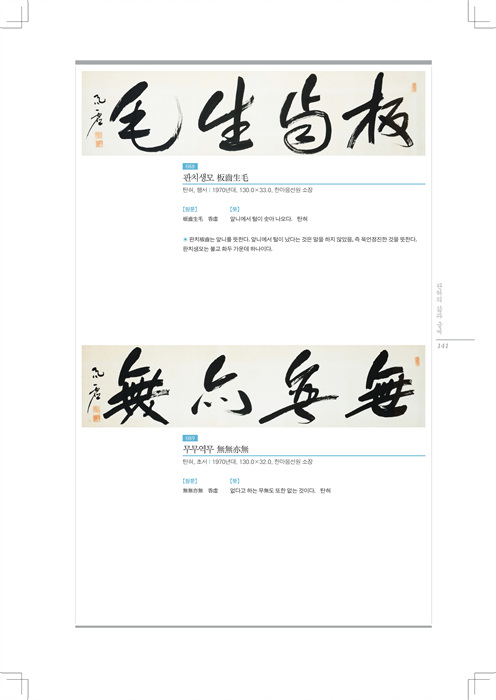 板齒生毛
吞虛
판치생모 板齒生毛
탄허, 행서 | 1970년대, 130.0×33.0, 한마음선원 소장
[원문] [뜻]
板齒生毛 吞虛 앞니에서 털이 솟아 나오다. 탄허
* 판치板齒는 앞니를 뜻한다. 앞니에서 털이 났다는 것은 말을 하지 않았음, 즉 묵언정진한 것을 뜻한다.
판치생모는 불교 화두 가운데 하나이다.
탄허의 삶과 글씨
141
無無亦無
吞虛
무무역무 無無亦無
탄허, 초서 | 1970년대, 130.0×32.0, 한마음선원 소장
[원문] [뜻]
無無亦無 吞虛 없다고 하는 무無도 또한 없는 것이다. 탄허